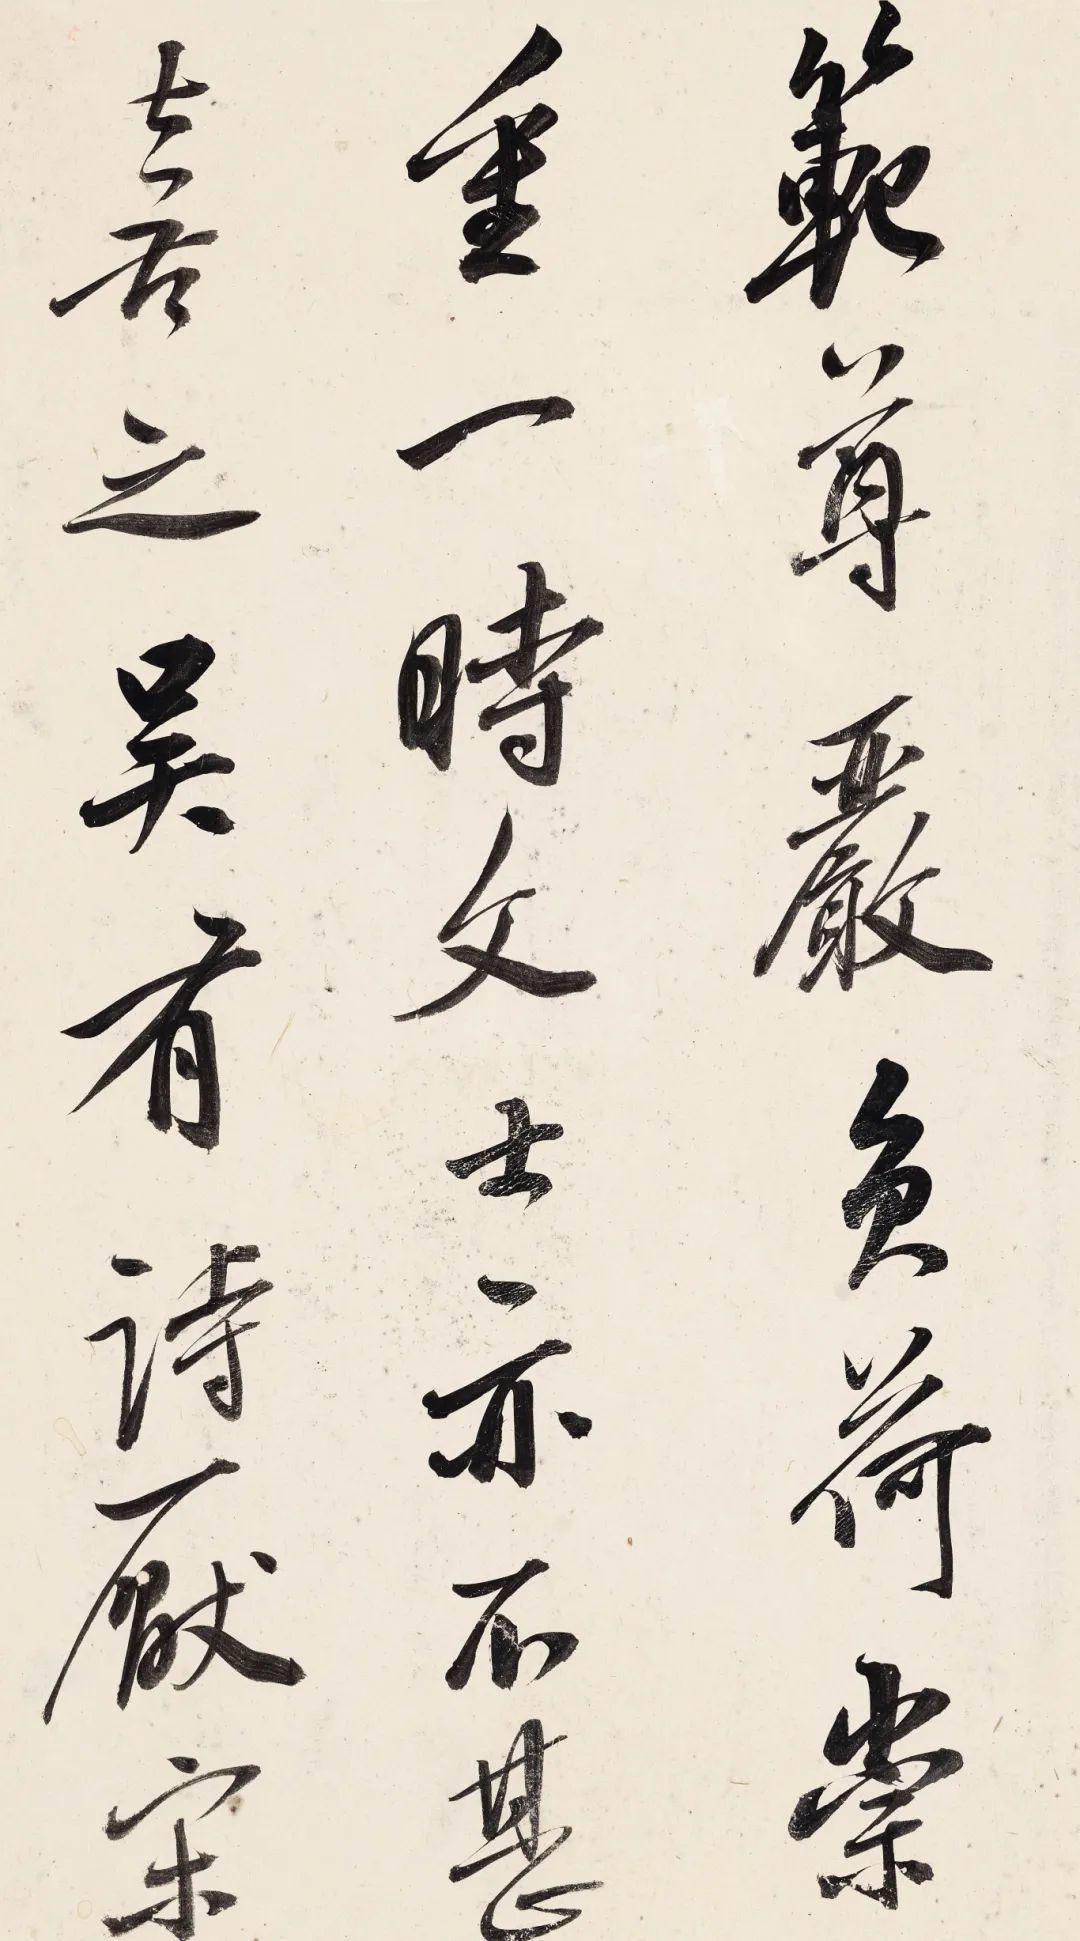 範尊嚴負荷崇
重一時文士亦不甚
喜之吳有詩厭宋